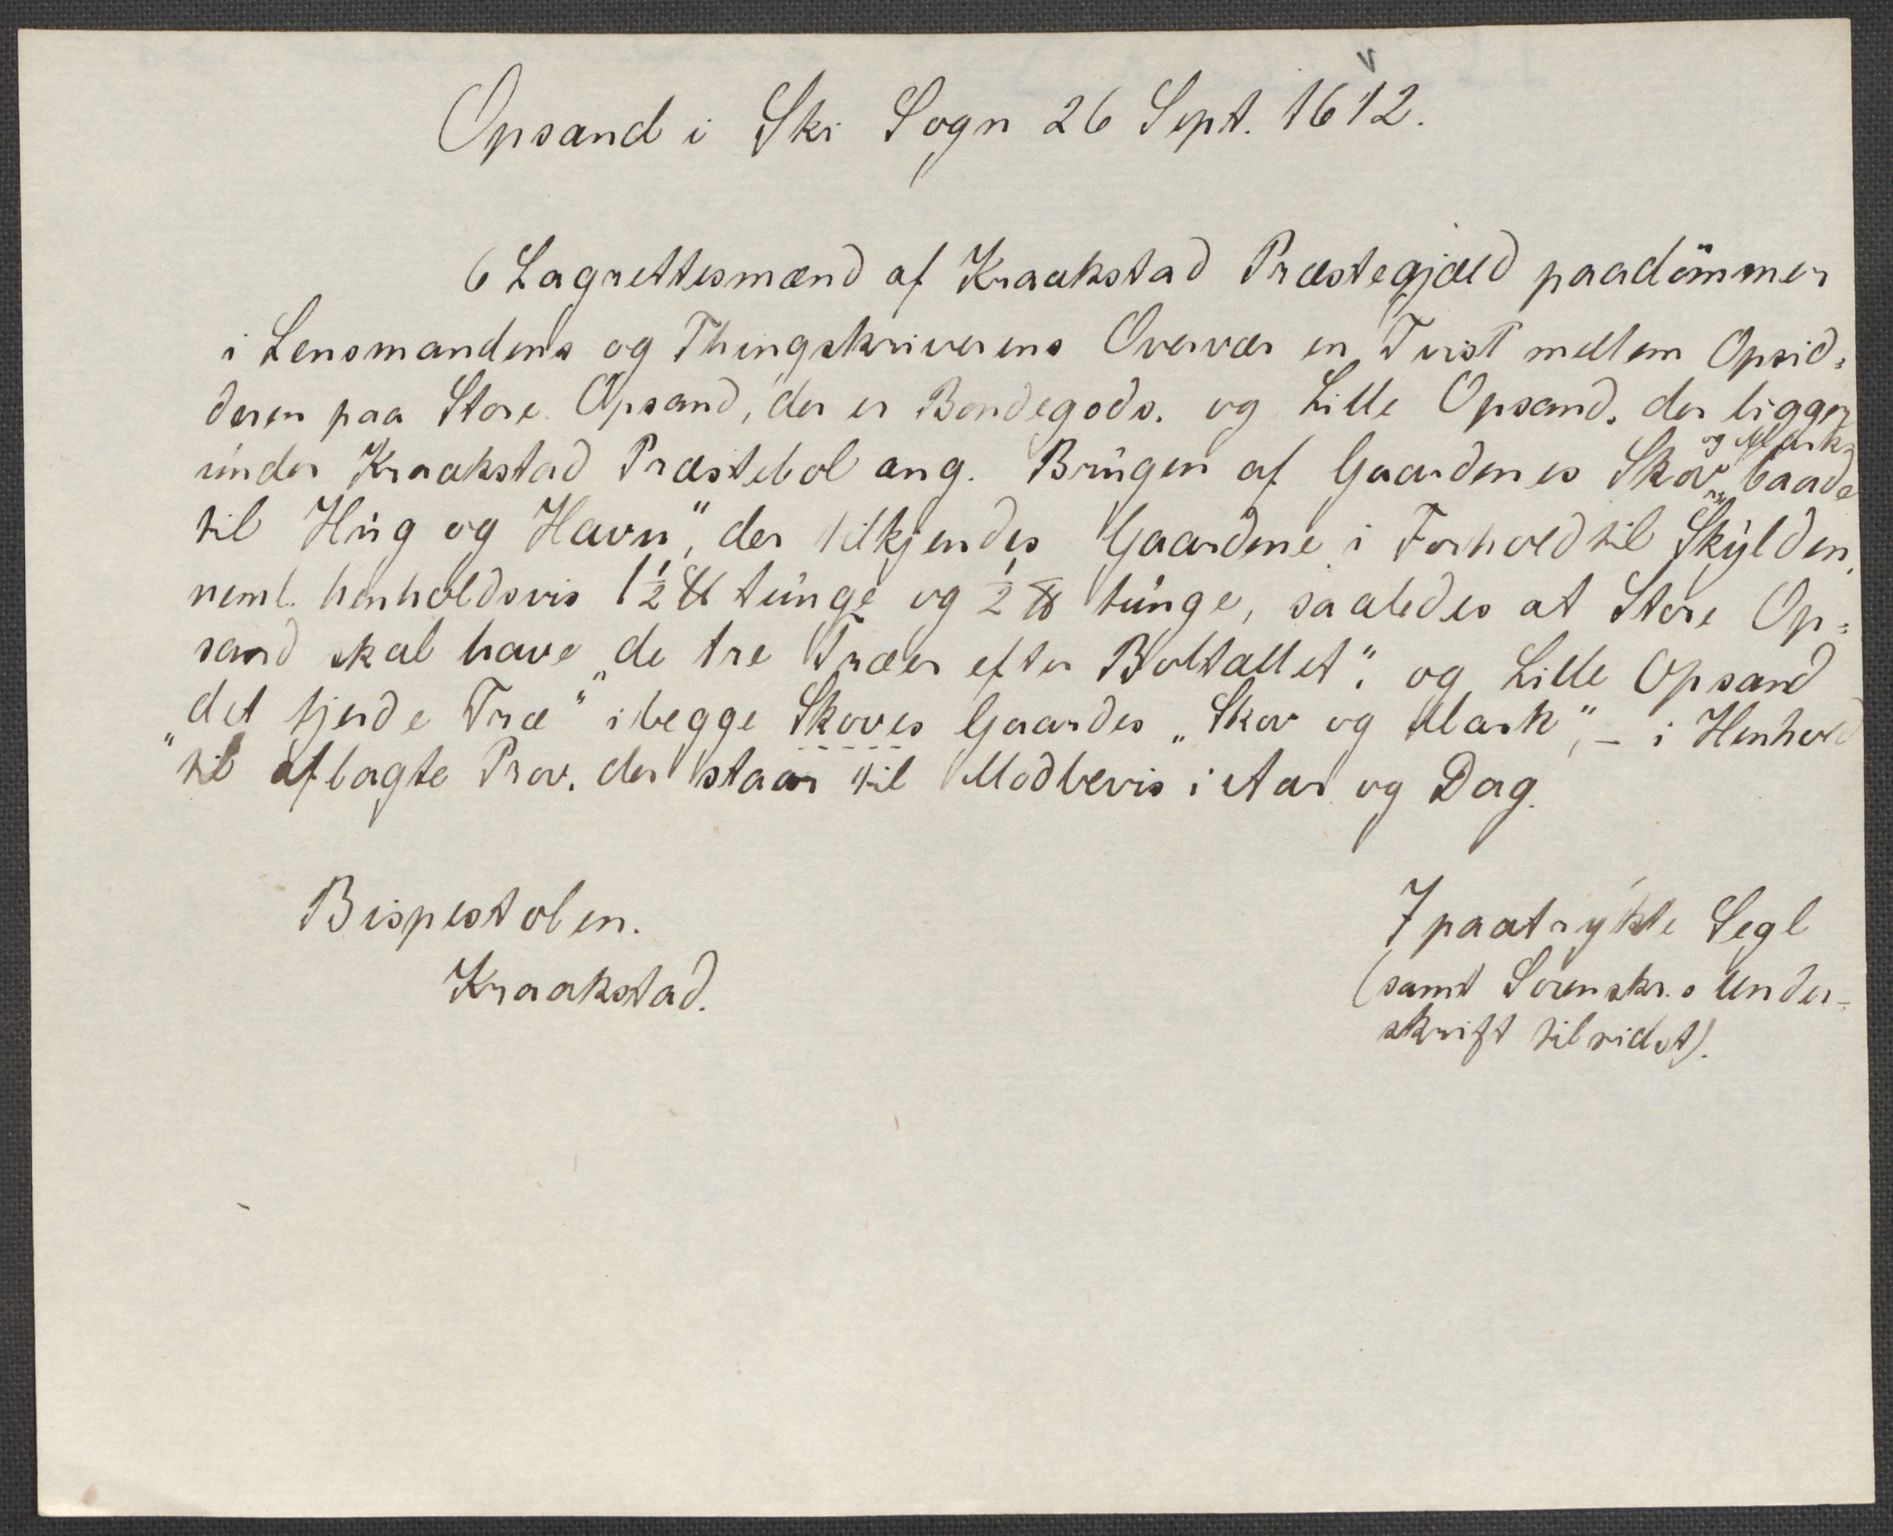 Opsand i Ski Sogn 26 Sept. 1612.
6 Lagrettesmænd af Kraakstad Præstegjæld paadömmer
i Lensmandens og Thingskriverens Overvær en Tvist mellem Opsid=
deren paa Store Opsand, der er Bondegods, og Lille Opsand, der ligger
under Kraakstad Præstebol ang. Brugen af Gaardenes Skov og Mark „baade
til Hug og Havn", der tilkjendes Gaardene i Forhold til Skylden,
neml. henholdsvis 1½ ℔ tunge og ½ ℔ tunge, saaledes at Store Op=
sand skal have „de tre Træer efter Boltallet", og Lille Opsand
„det fjerde Træ" i begge Skoves Gaardes „Skov og Mark", – i Henhold
til aflagte Prov, der staar til Modbevis i Aar og Dag.
Bispestolen.
Kraakstad.
7 paatrykte Segl
(samt Sorenskr.s Under=
skrift tilsidst).